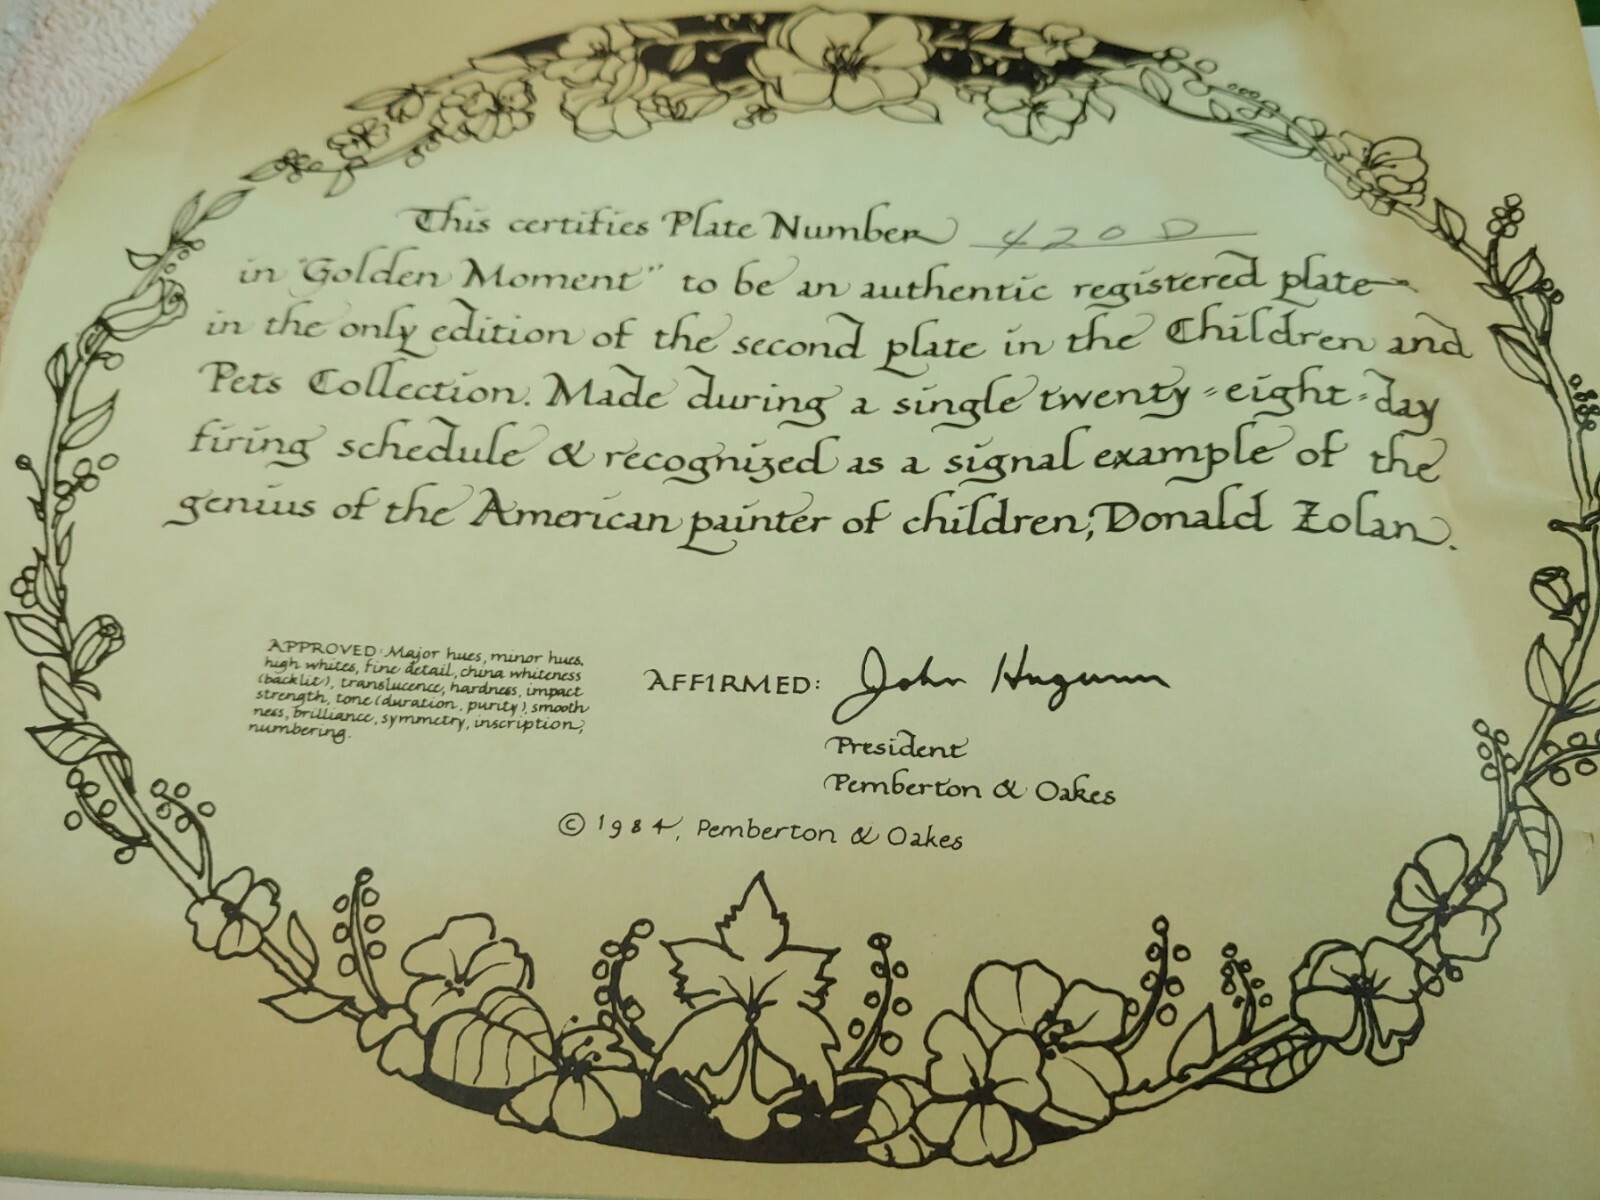 This certifies Plate Number 420D
in "Golden Moment" to be an authentic registered plate
in the only edition of the second plate in the Children and
Pets Collection. Made during a single twenty-eight-day
firing schedule & recognized as a signal example of the
genius of the American painter of children, Donald Zolan.
APPROVED: Major hues, minor hues,
high whites, fine detail, china whiteness
(backlit), translucence, hardness, impact
strength, tone (duration, purity), smooth
ness, brilliance, symmetry, inscription,
numbering.
AFFIRMED: John Hugunin
President
Pemberton & Oakes
© 1984, Pemberton & Oakes